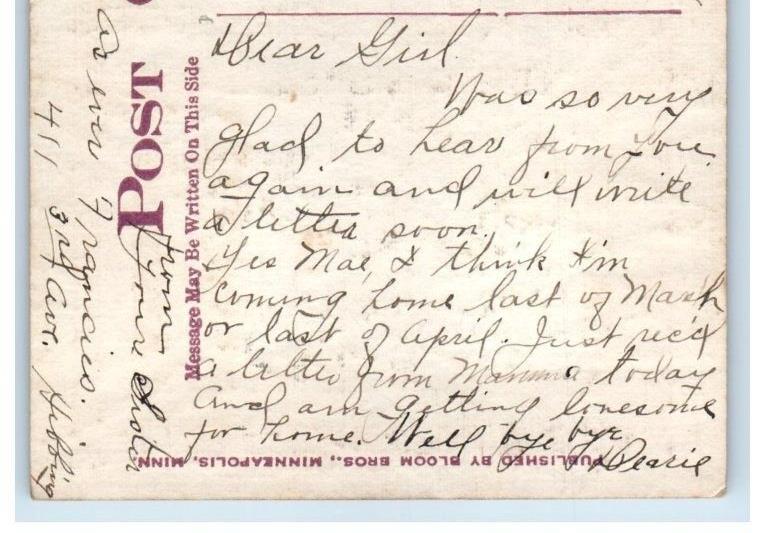 Dear Girl.
Was so very
glad to hear from you
again and will write
a letter soon.
Yes Mae, I think I'm
coming home last of March
or last of April. Just rec'd
a letter from Mamma today
and am getting lonesome
for home. Well bye bye
Dearie
from
Your Sister
as ever Francies.
411 3rd Ave. Hibbing
POST
Message May Be Written On This Side
PUBLISHED BY BLOOM BROS., MINNEAPOLIS, MINN.